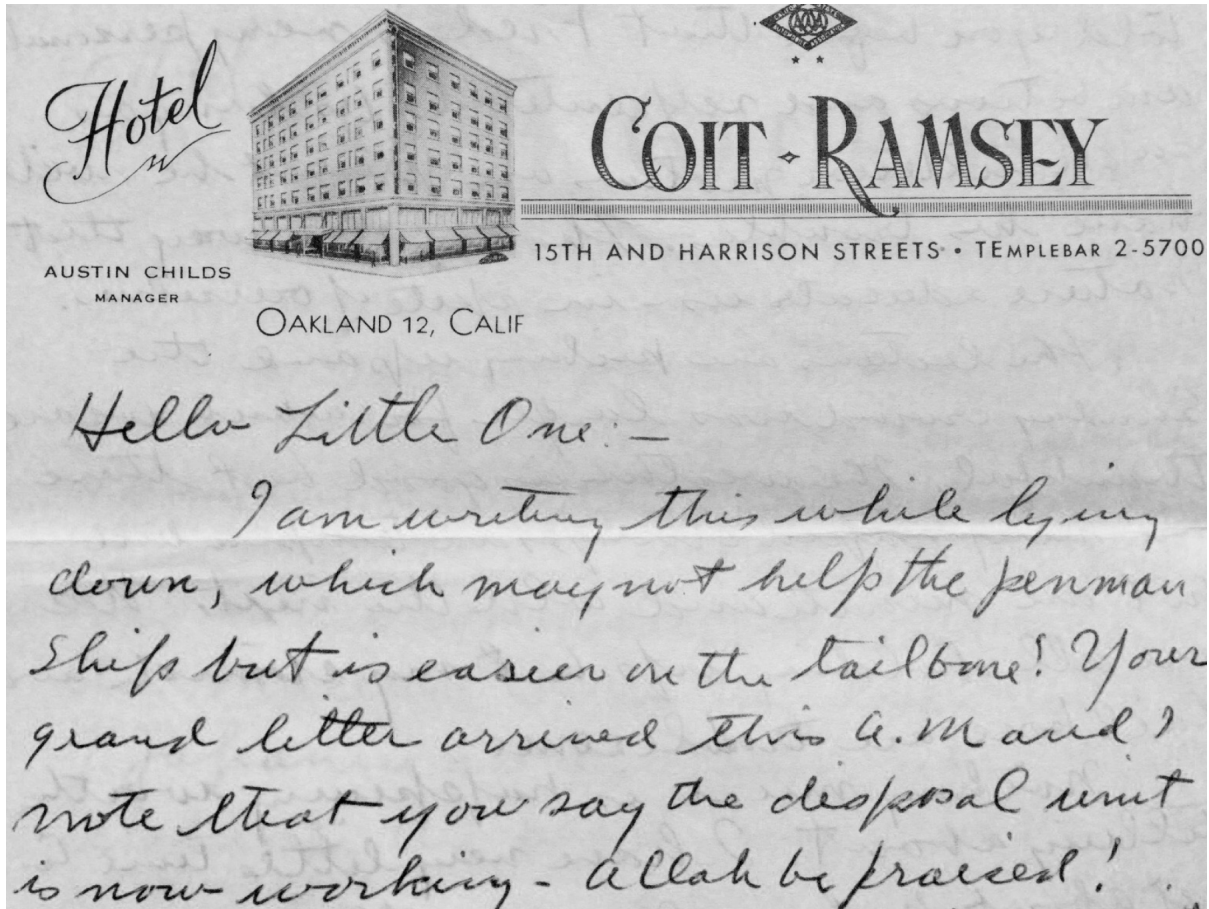 Hotel
AAA
COIT - RAMSEY
15TH AND HARRISON STREETS • TEMPLEBAR 2-5700
AUSTIN CHILDS
MANAGER
OAKLAND 12, CALIF
Hello Little One:-
I am writing this while lying
down, which may not help the penman
ship but is easier on the tailbone! Your
grand letter arrived this a.m and I
note that you say the disposal unit
is now working - Allah be praised!